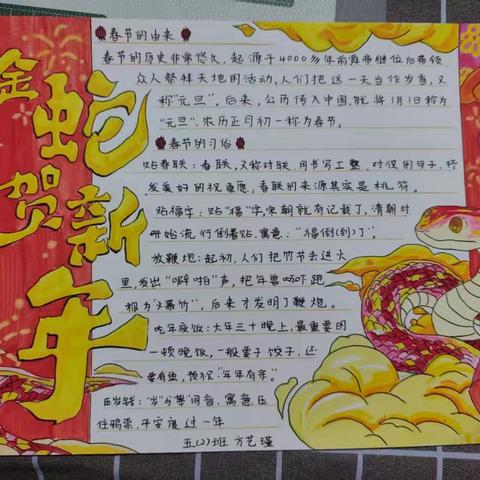 金蛇贺新年
春节的由来
春节的历史非常悠久,起源于4000多年前舜帝继位后带领
众人祭拜天地的活动,人们把这一天当作岁首,又
称"元旦",后来,公历传入中国,就将1月1日称为
"元旦",农历正月初一称为春节。
春节的习俗
贴春联:春联,又称对联,用书写工整、对仗的句子,抒
发美好的祝愿。春联的来源其实是桃符。
贴福字:贴"福"字,宋朝就有记载了,清朝时
开始流行倒着贴,寓意:"福倒(到)了"。
放鞭炮:起初,人们把竹节丢进火
里,发出"噼啪"声,把年兽吓跑
称为"爆竹",后来才发明了鞭炮。
吃年夜饭:大年三十晚上,最重要的
一顿晚饭,一般要子饺子,还
要有鱼,预祝"年年有余。"
压岁钱:"岁"与"祟"同音,寓意压
住鸦祟,平安度过一年
五(2)班 方艺瑾